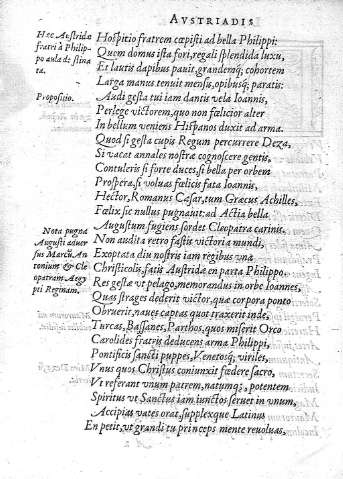 AVSTRIADIS
Hæc Austriadæ
fratri à Philip-
po aula destina
ta.
Hospitio fratrem cœpisti ad bella Philippi:
Quem domus ista fori, regali splendida luxu,
Et lautis dapibus pauit, grandemq; cohortem
Larga manus tenuit mensa, opibusq; paratis:
Propositio.
Audi gesta tui iam dantis vela Ioannis,
Perlege victorem, quo non fœlicior alter
In bellum veniens Hispanos duxit ad arma.
Quod si gesta cupis Regum percurrere Deza,
Si vacat annales nostræ cognoscere gentis,
Contuleris si forte duces, si bella per orbem
Prospera, si voluas fœlicis fata Ioannis,
Hector, Romanus Cæsar, tum Græcus Achilles,
Fœlix sic nullus pugnauit: ad Actia bella
Nota pugnã
Augusti aduer
sus Marcũ, An
tonium & Cle
opatram Aegy
pti Reginam.
Augustum fugiens sordet Cleopatra carinis.
Non audita retro fastis victoria mundi,
Exoptata diu nostris iam regibus vna
Christicolis, fatis Austriadæ en parta Philippo.
Res gesta vt pelago, memorandus in orbe Ioannes,
Quas strages dederit victor, qua corpora ponto
Obruerit, naues captas quot traxerit inde,
Turcas, Bassanes, Parthos, quot miserit Orco
Carolides fratris deducens arma Philippi,
Pontificis sancti puppes, Venetosq; viriles,
Vnus quos Christus coniunxit fœdere sacro,
Vt referant vnum patrem, natumq;, potentem
Spiritus vt Sanctus iam iunctos seruet in vnum,
Accipias vates orat, supplexque Latinus
En petit, vt grandi tu princeps mente reuoluas,